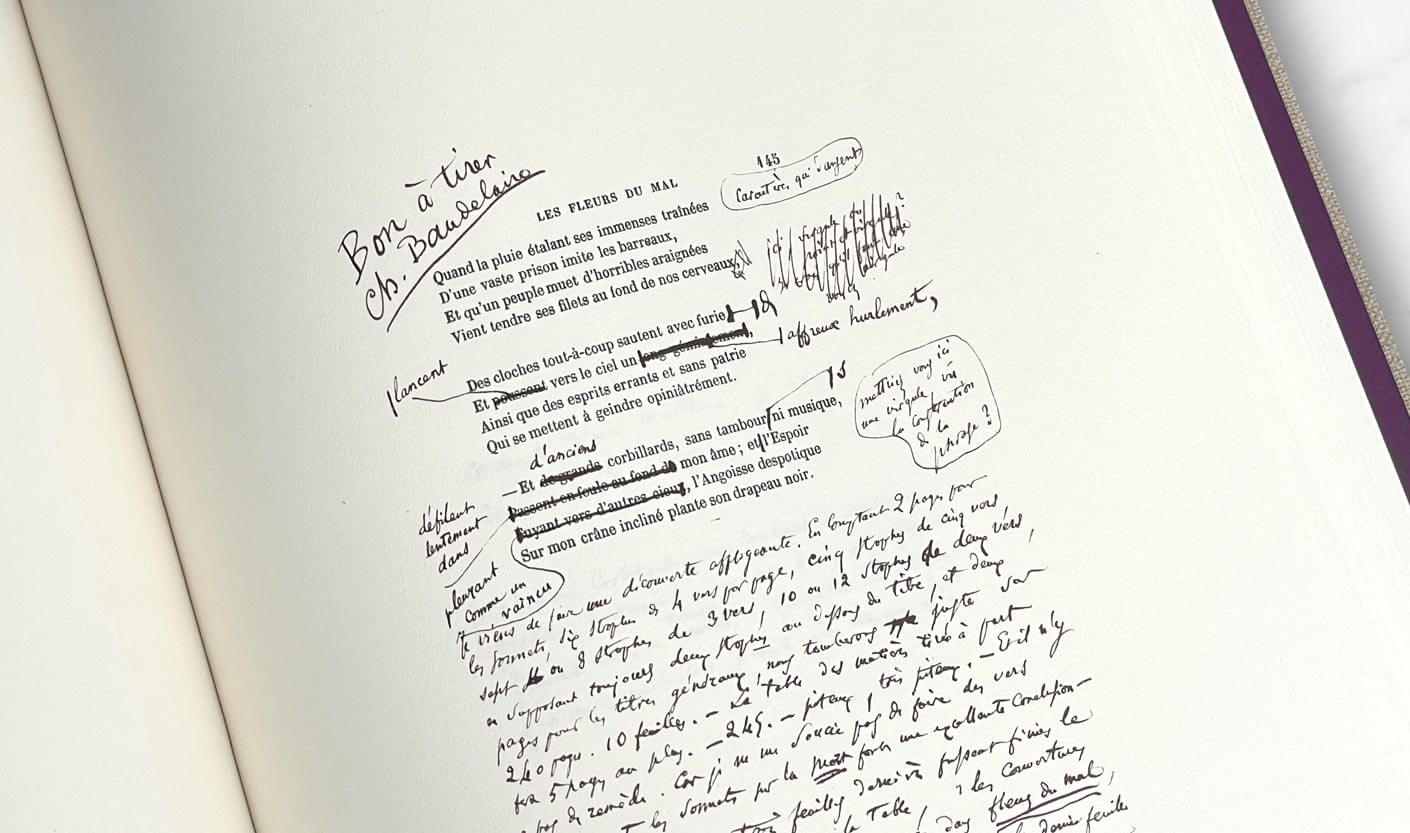 Bon à tirer
Ch. Baudelaire
145
LES FLEURS DU MAL
Quand la pluie étalant ses immenses traînées
D'une vaste prison imite les barreaux,
Et qu'un peuple muet d'horribles araignées
Vient tendre ses filets au fond de nos cerveaux,
Des cloches tout-à-coup sautent avec furie
lancent
Et poussent vers le ciel un long gémissement,
affreux hurlement,
Ainsi que des esprits errants et sans patrie
Qui se mettent à geindre opiniâtrément.
mettriez vous ici
une virgule vu
la construction
de la
phrase?
d'anciens
— Et de grands corbillards, sans tambour ni musique,
s
Passent en foule au fond de mon âme ; et l'Espoir
défilent
lentement
dans
Fuyant vers d'autres cieux, l'Angoisse despotique
pleurant
comme un
vaincu
Sur mon crâne incliné plante son drapeau noir.
Je viens de faire une découverte affligeante. En comptant 2 pages pour
les sonnets, six strophes de 4 vers par page, cinq strophes de cinq vers
sept ou 8 strophes de 3 vers, 10 ou 12 strophes de deux vers,
en supposant toujours deux strophes au dessous du titre, et deux
pages pour les titres généraux, nous tomberons juste sur
240 pages. 10 feuilles. — La table des matières tirée à part
fera 5 pages au plus. — 245. — piteux, très piteux. — Et il n'y
a pas de remède. Car je ne me soucie pas de faire des vers
les sonnets sur la mort font une excellente conclusion —
feuilles dernières fussent finies le
la Table, les couvertures
fleurs du mal,